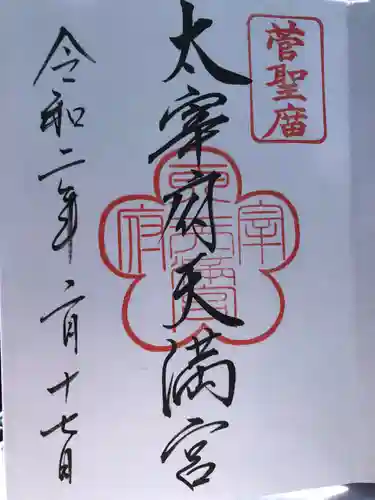 菅聖庿
太宰府天満宮
令和二年 二月十七日